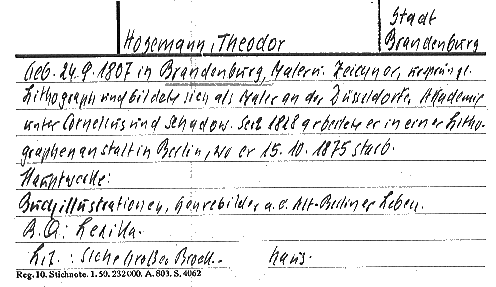 Stadt
Hosemann, Theodor Brandenburg
Geb. 24.9.1807 in Brandenburg, Maler u. Zeichner, ursprgl.
Lithograph und bildete sich als Maler an der Düsseldorfer Akademie
unter Cornelius und Schadow. Seit 1828 arbeitete er in einer Litho-
graphenanstalt in Berlin, wo er 15.10.1875 starb.
Hauptwerke:
Buchillustrationen, Genrebilder a.d. Alt-Berliner Leben.
B.Q.: Lexika.
Lit.: Siehe Großer Brock. Haus.
Reg. 10. Stichnote. 1. 50. 232000. A. 803. S. 4062